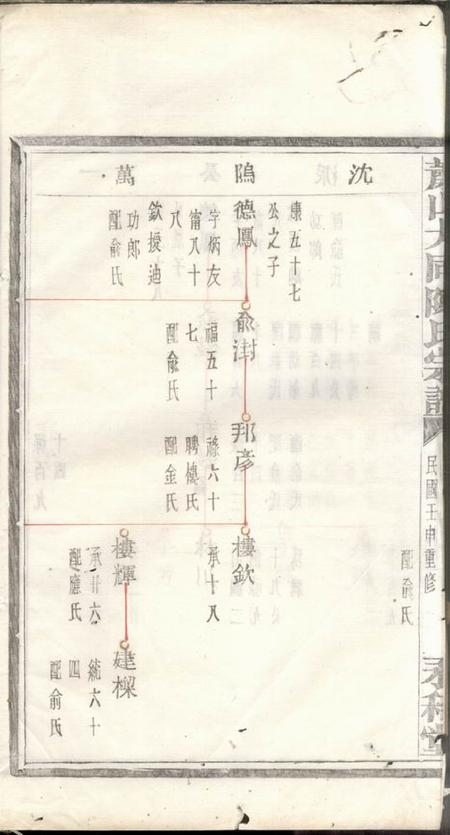 蕭山大同陳氏宗譜
民國壬申重修
配俞氏
沈
隝
萬
康五十七
公之子
德鳳
字炳友
甯八十
八
欽授迪
功郎
配俞氏
兪澍
福五十
七
配兪氏
邦彥
祿六十
聘傅氏
配金氏
樓欽
承十八
樓輝
承廿六
配應氏
建樑
統六十
四
配俞氏